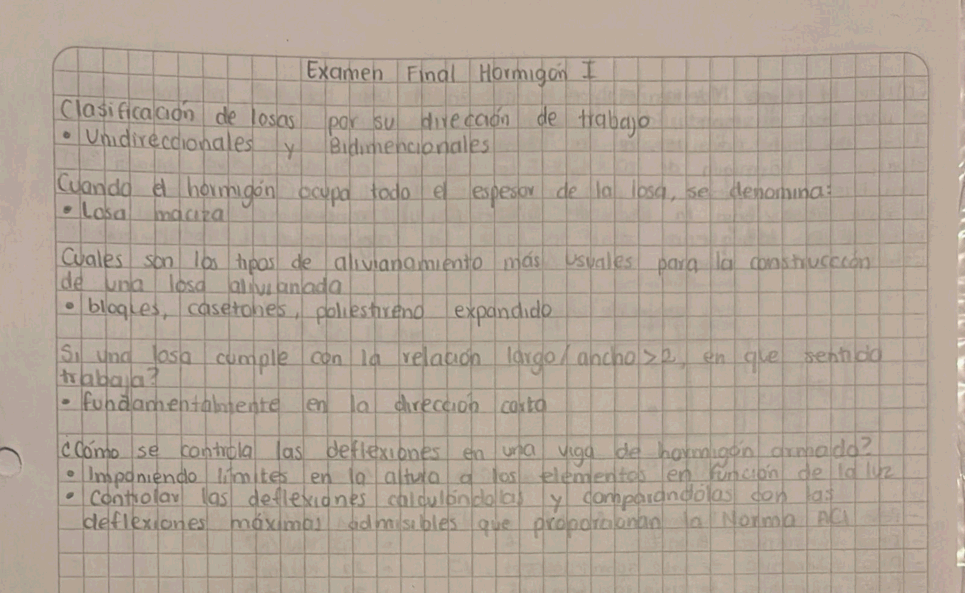 Examen Final Hormigón I
Clasificación de losas por su dirección de trabajo
• Unidireccionales y Bidimencionales
Cuando el hormigón ocupa todo el espesor de la losa, se denomina:
• Losa maciza
Cuales son los tipos de alivianamiento más usuales para la construcción
de una losa alivianada
• bloques, casetones, poliestireno expandido
Si una losa cumple con la relación largo/ancho >2, en que sentido
trabaja?
• fundamentalmente en la dirección corta
¿Cómo se controla las deflexiones en una viga de hormigón armado?
• Imponiendo límites en la altura a los elementos en función de la luz
• Controlar las deflexiones calculándolas y comparandolas con las
deflexiones máximas admisibles que proporcionan la Norma ACI